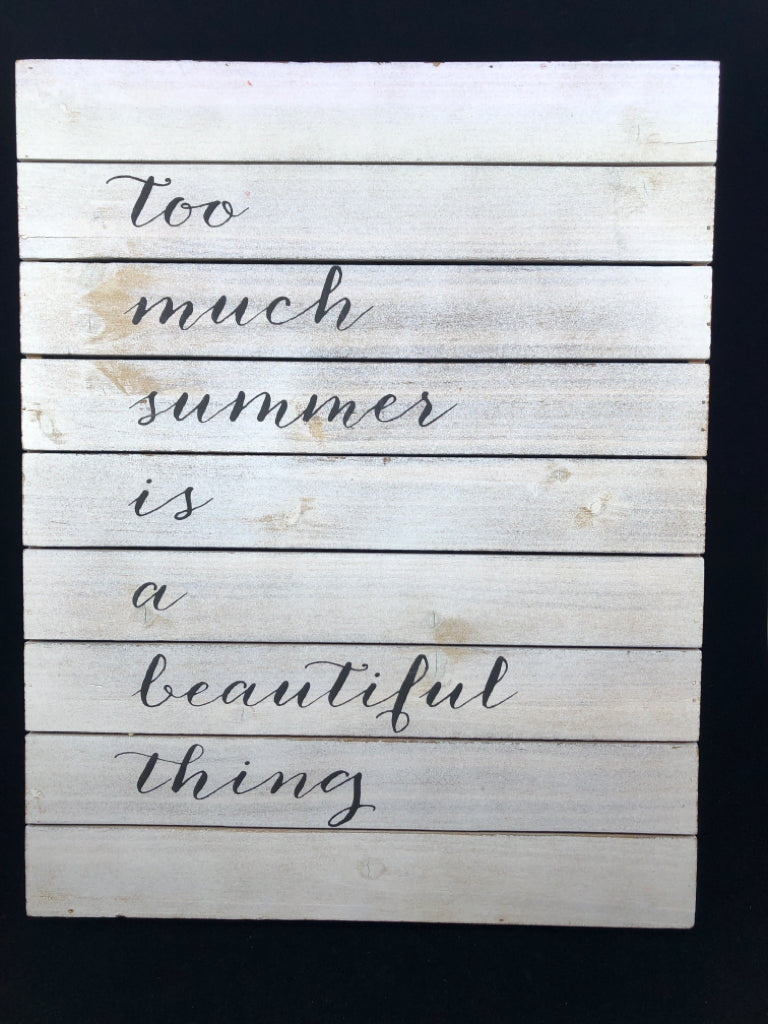 too
much
summer
is
a
beautiful
thing